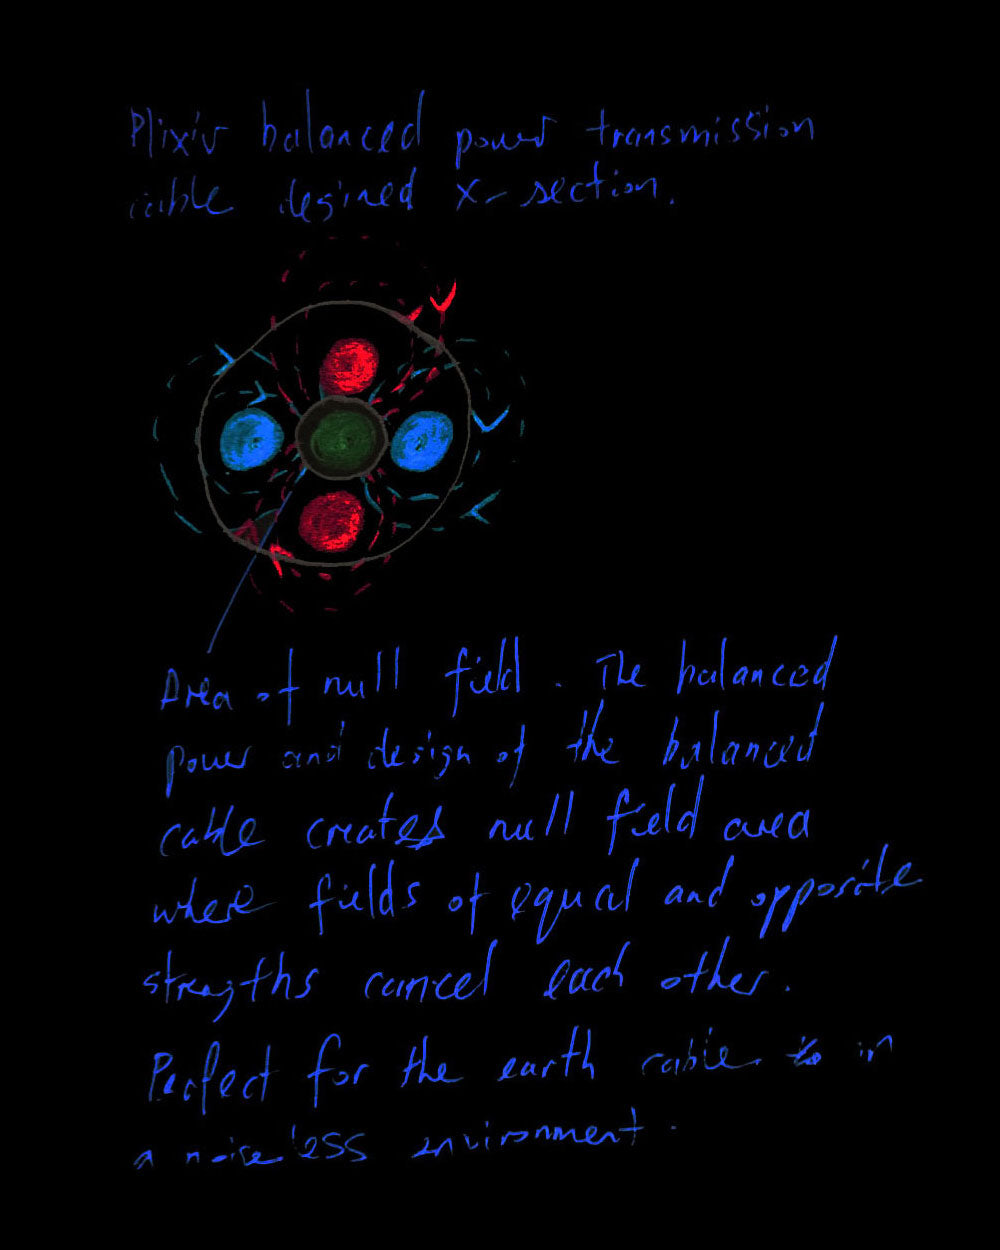 Plixir balanced power transmission
cable desgined x-section.
Area of null field. The balanced
power and design of the balanced
cable creates null field area
where fields of equal and opposite
strengths cancel each other.
Perfect for the earth cable to in
a noiseless environment.